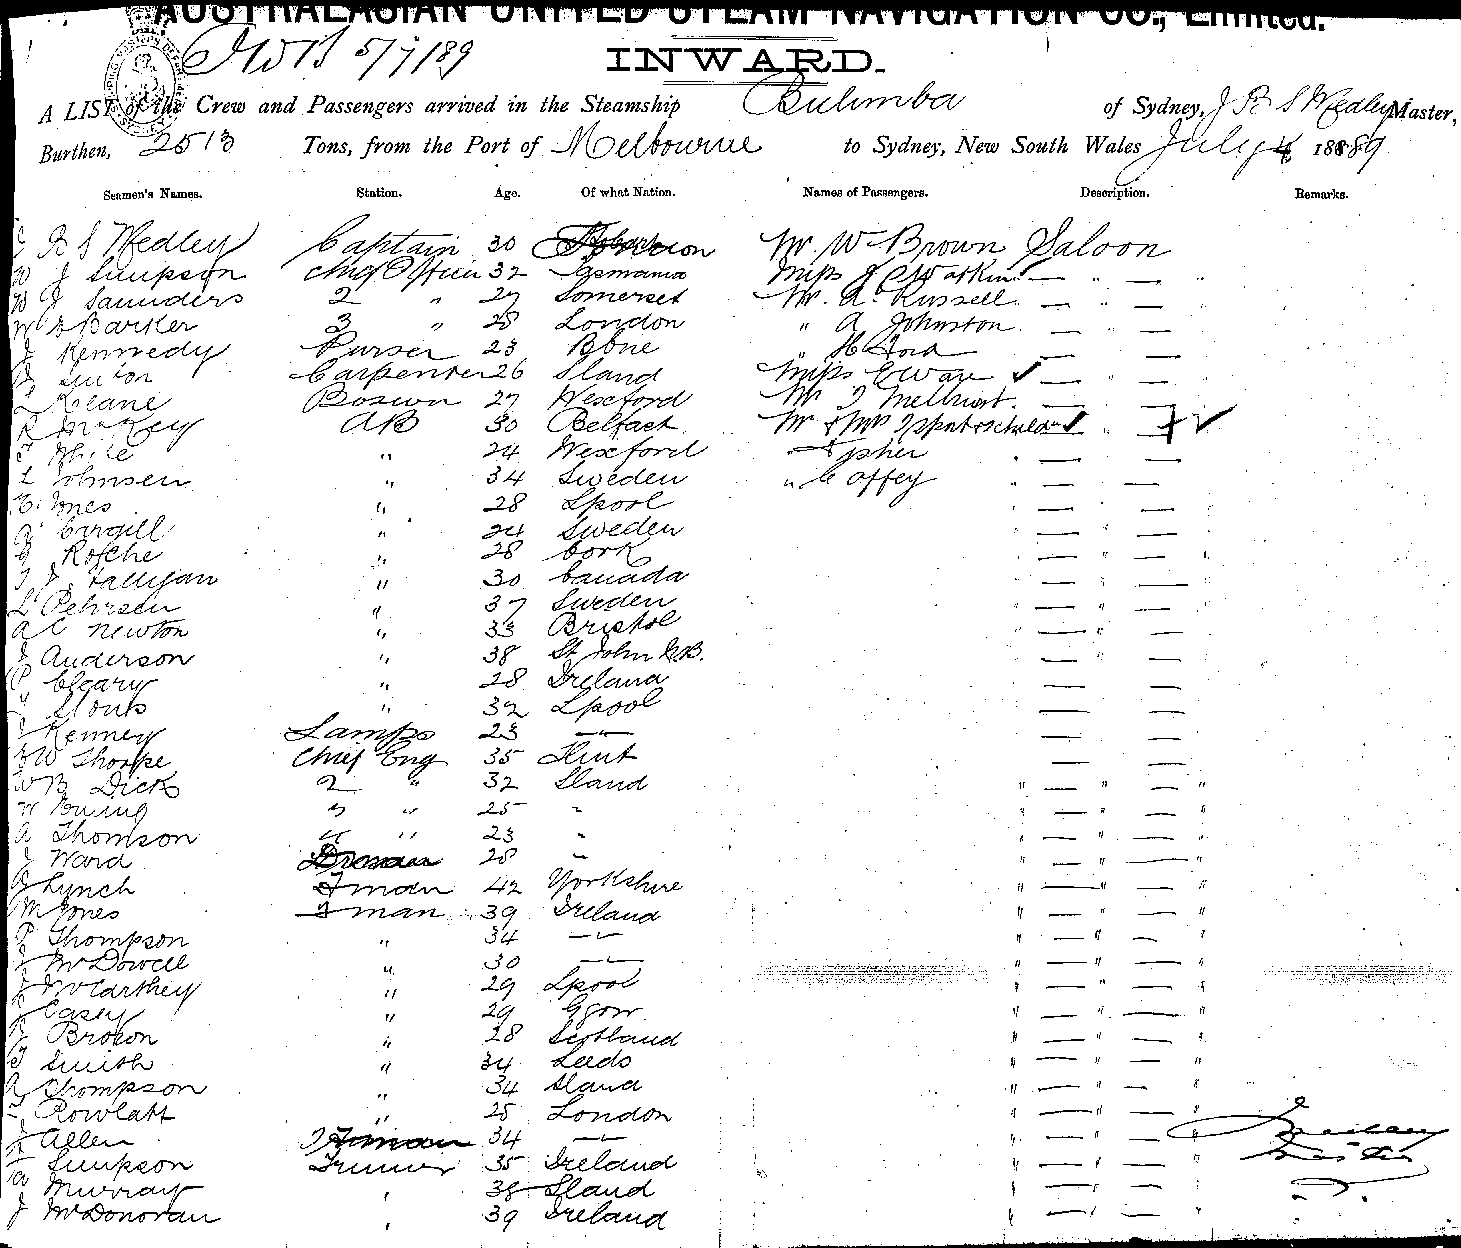 AUSTRALASIAN UNITED STEAM NAVIGATION CO., Limited.
5/7/89
INWARD.
A LIST of the Crew and Passengers arrived in the Steamship Bulimba of Sydney, J B S Medley Master,
Burthen, 2513 Tons, from the Port of Melbourne to Sydney, New South Wales July 4 18889
Seamen's Names. Station. Age. Of what Nation. Names of Passengers. Description. Remarks.
J B S Medley Captain 30 Mr. W Brown Saloon
W J Simpson Chief Officer 32 Tasmania Miss Watkins — " —
W J Saunders 2 " 27 Somerset Mr. A. Russell — " —
W S Barker 3 " 28 London " A Johnston — " —
J Kennedy Purser 23 Bone " H Ford — —
Carpenter 26 Sland Miss E Ware — —
Keane Boswn 27 Wexford Mr J — —
R McKey AB 30 Belfast Mr & Mrs
T White " 24 Wexford — —
L Johnsen " 34 Sweden " Caffey " — —
E Jones " 28 Lpool — —
Cargill " 24 Sweden — —
Rosche " 28 Cork — " — "
" 30 Canada — " —
L Pehrsen " 37 Sweden " — " —
A C Newton " 33 Bristol " — " —
J Anderson " 38 St John N.B. " — " —
P Cleary " 28 Ireland — —
" 32 Lpool — —
J Kenney Lamps 23 — — —
W Thorpe Chief Eng 35 Kent — —
W B Dick 2 " 32 Sland " — " — "
3 " 25 " " — " — "
A Thomson 4 " 23 " " — " — "
J Ward 28 " " — " — "
Lynch Fman 42 Yorkshire " — " — "
M Jones Fman 39 Ireland " — " — "
P Thompson " 34 — " — " — "
J McDowell " 30 — " — " — "
J McCarthey " 29 Lpool " — " — "
J Casey " 29 Ggow " — " — "
J Brown " 28 Scotland " — " — "
T Smith " 34 Leeds " — " — "
A Thompson " 34 Sland " — " — "
Rowlatt " 25 London " — " — "
J Allen 34 — " — " — " Medley
Simpson Trimmer 35 Ireland " — " — " Master
Murray " 38 Sland " — " — "
J McDonovan " 39 Ireland " — " — "